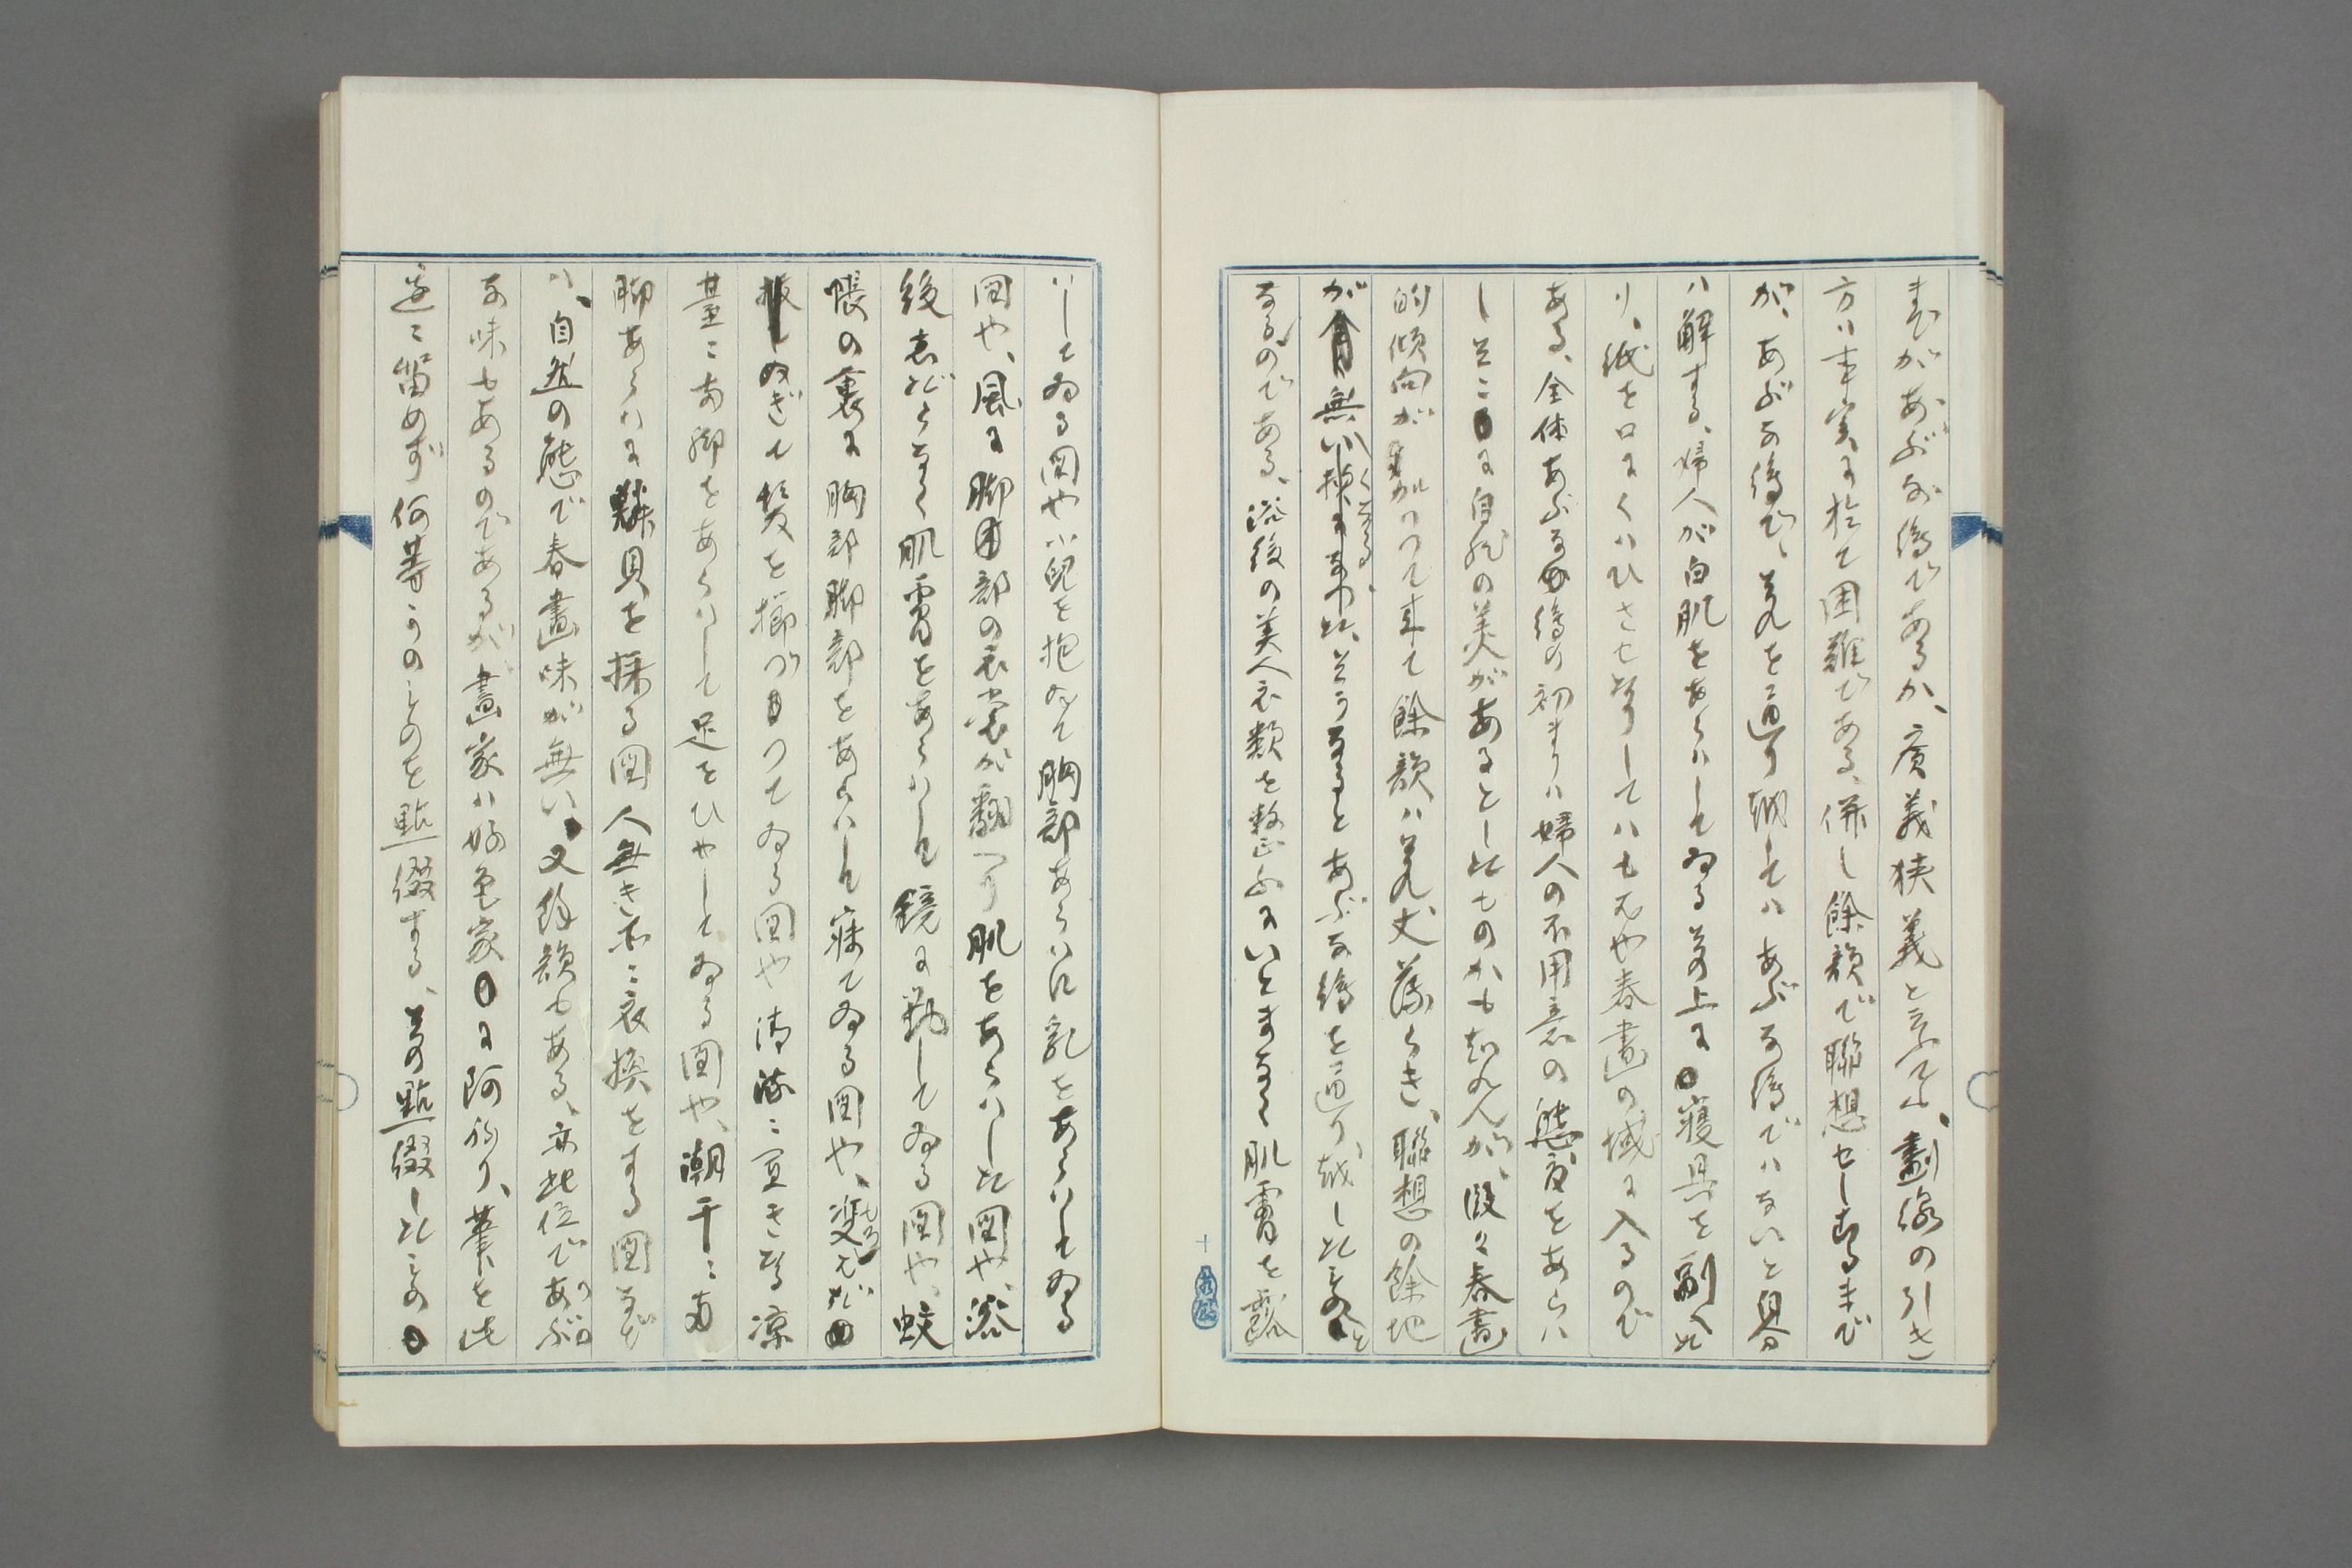 までがあぶな絵であるか、廣義狭義と云ふて山、劃線の引き
方ハ事実に於て困難である、併し餘韻で聯想せしむるまで
が、あぶな絵で、其れを通り越してハあぶな絵でハないと自分
ハ解する、婦人が白肌をあらハしてゐる其の上に寝具を副へた
り、紙を口にくハひさせなどしてハもはや春畫の域に入るので
ある、全体あぶな絵の初まりハ婦人の不用意の態度をあらハ
しそこに自然の美があるとしたものかも知れんが、段々春畫
的傾向が加ハつて来て餘韻ハ其れ丈薄らき、聯想の餘地
が無くなる、そうなるとあぶな絵を通り越したものと
なるのである、浴後の美人衣類を整ふにいとまなく肌膚を露
ハしてゐる図や小児を抱ゐて胸部あらハに乳をあらハしてゐる
図や、風に脚部の衣裳が翻つり肌をあらハした図や、浴
後衣だらなく肌膚をあらハして鏡に対してゐる図や、蚊
帳の裏に胸部脚部をあらハして寐てゐる図や、雙はだ
ぬぎて髪を櫛づつてゐる図や清流ニ宜きなる涼
臺ニ両脚をあらハして足をひやしてゐる図や、潮干ニ両
脚あらハに貝を採る図人無き所ニ衣換をする図など
ハ、自然の態で春畫味が無い、又餘韻もある、亦此位であぶ
な味もあるのであるが畫家ハ好色家に阿ねり、筆を此
辺ニ留めず何等かのものを點綴する、其の點綴したもの